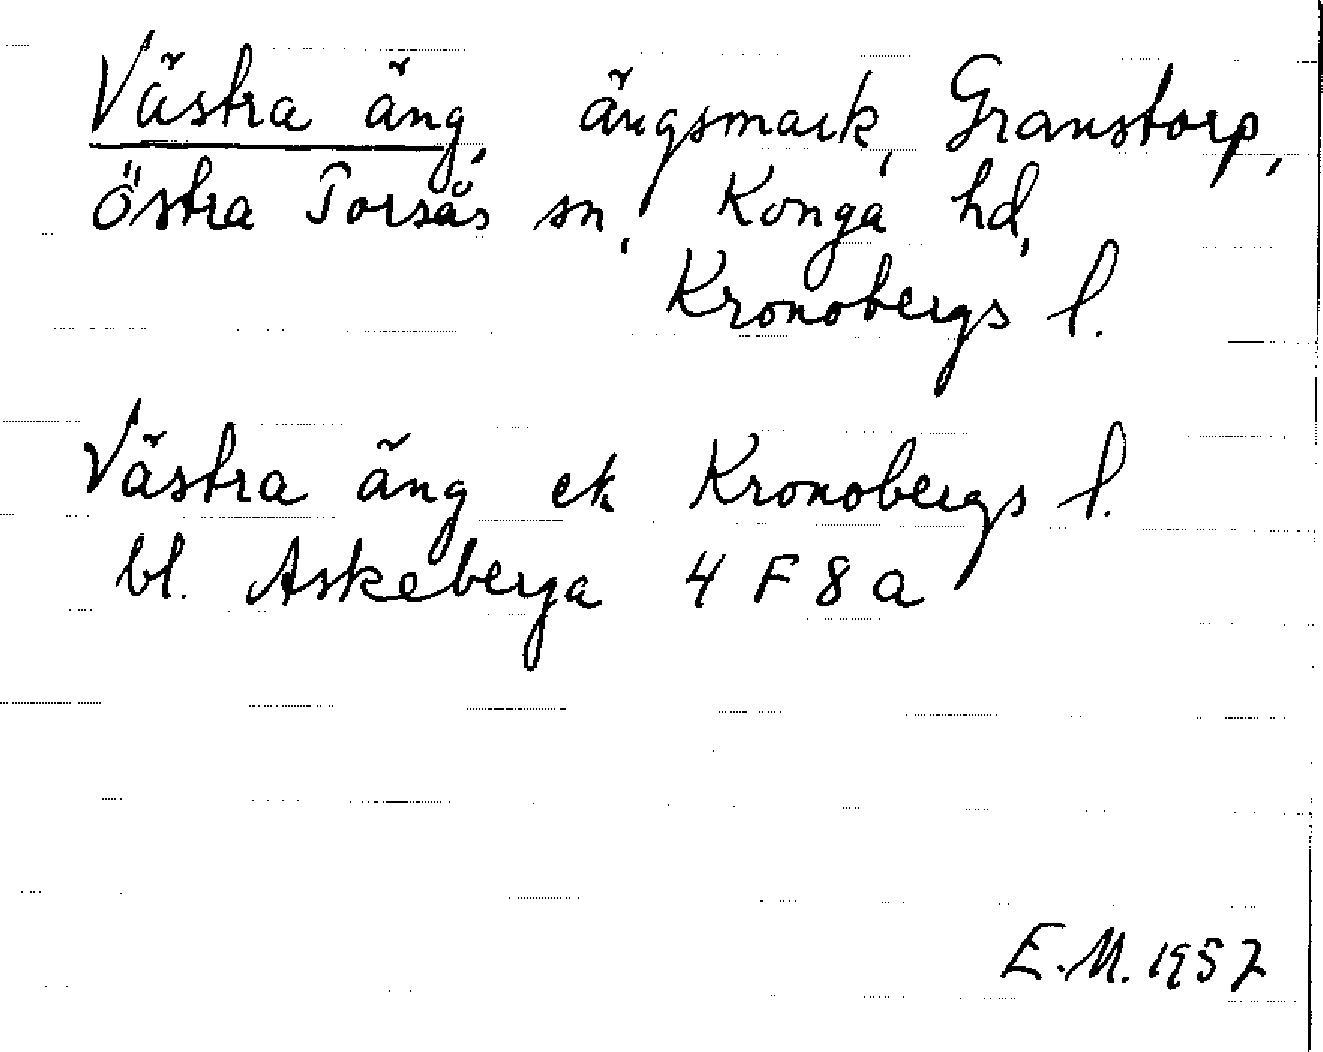 Västra äng, ängsmark, Granstorp,
Östra Torsås sn, Konga hd,
Kronobergs l.
Västra äng ek Kronobergs l.
bl. Askeberga 4 F 8 a
E.M. 1957